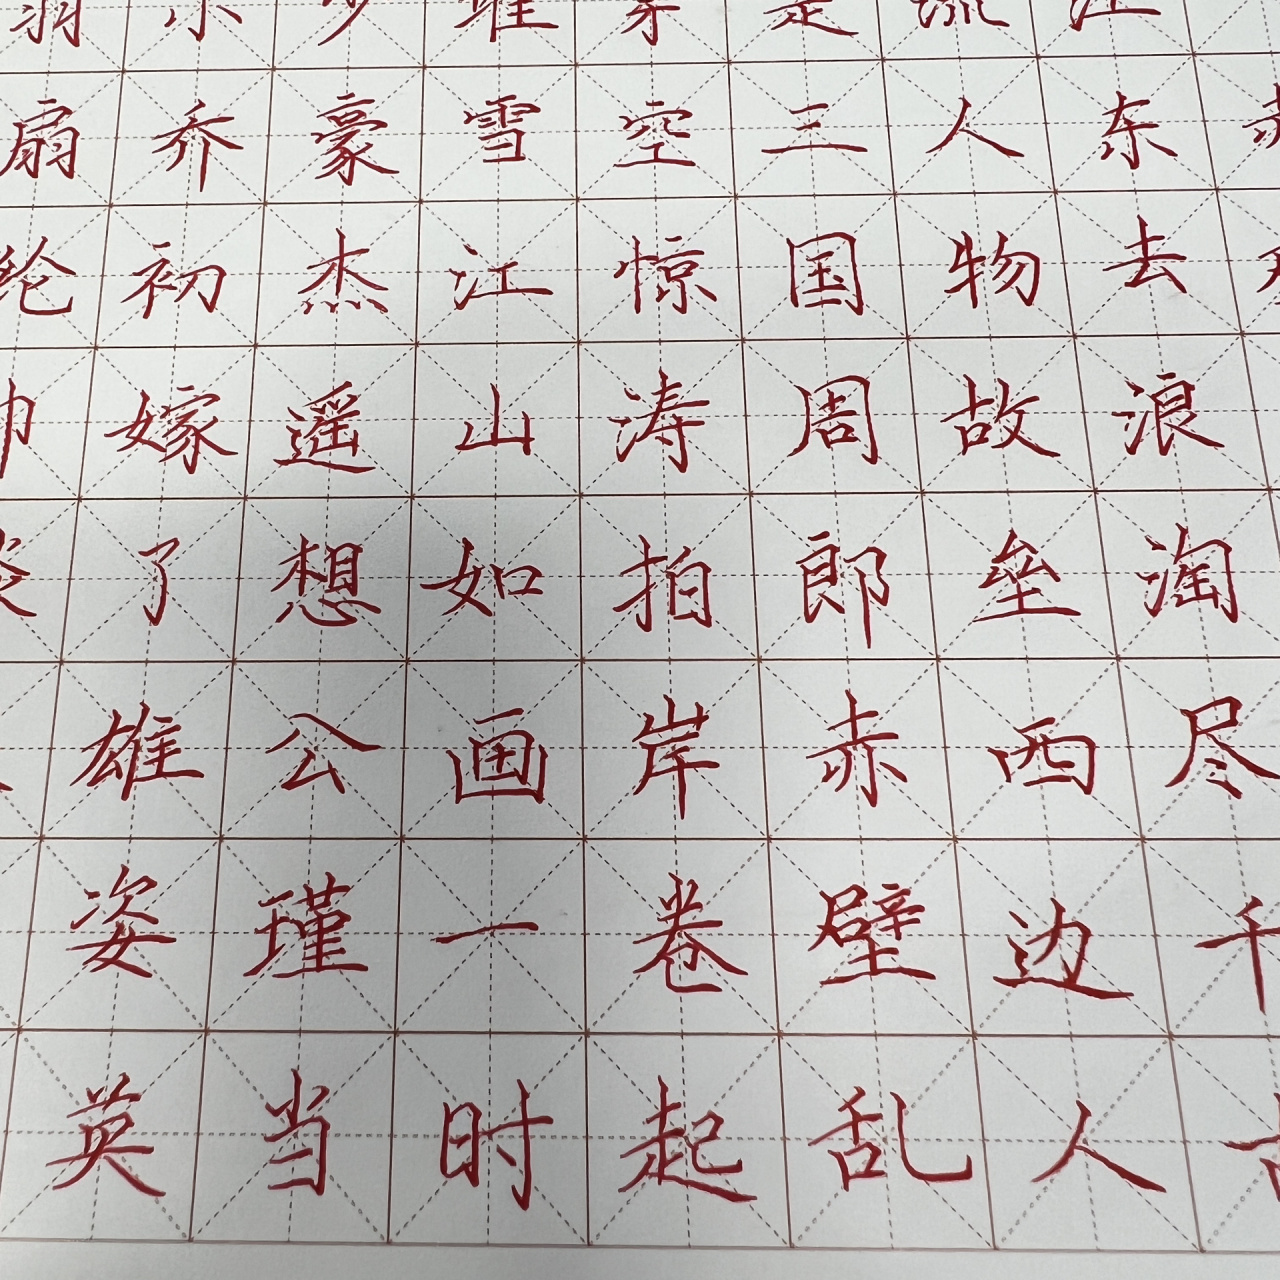 江东去浪淘尽千
流人物故垒西边人
是三国周郎赤壁乱
穿空惊涛拍岸卷起
堆雪江山如画一时
少豪杰遥想公瑾当
小乔初嫁了雄姿英
扇纶